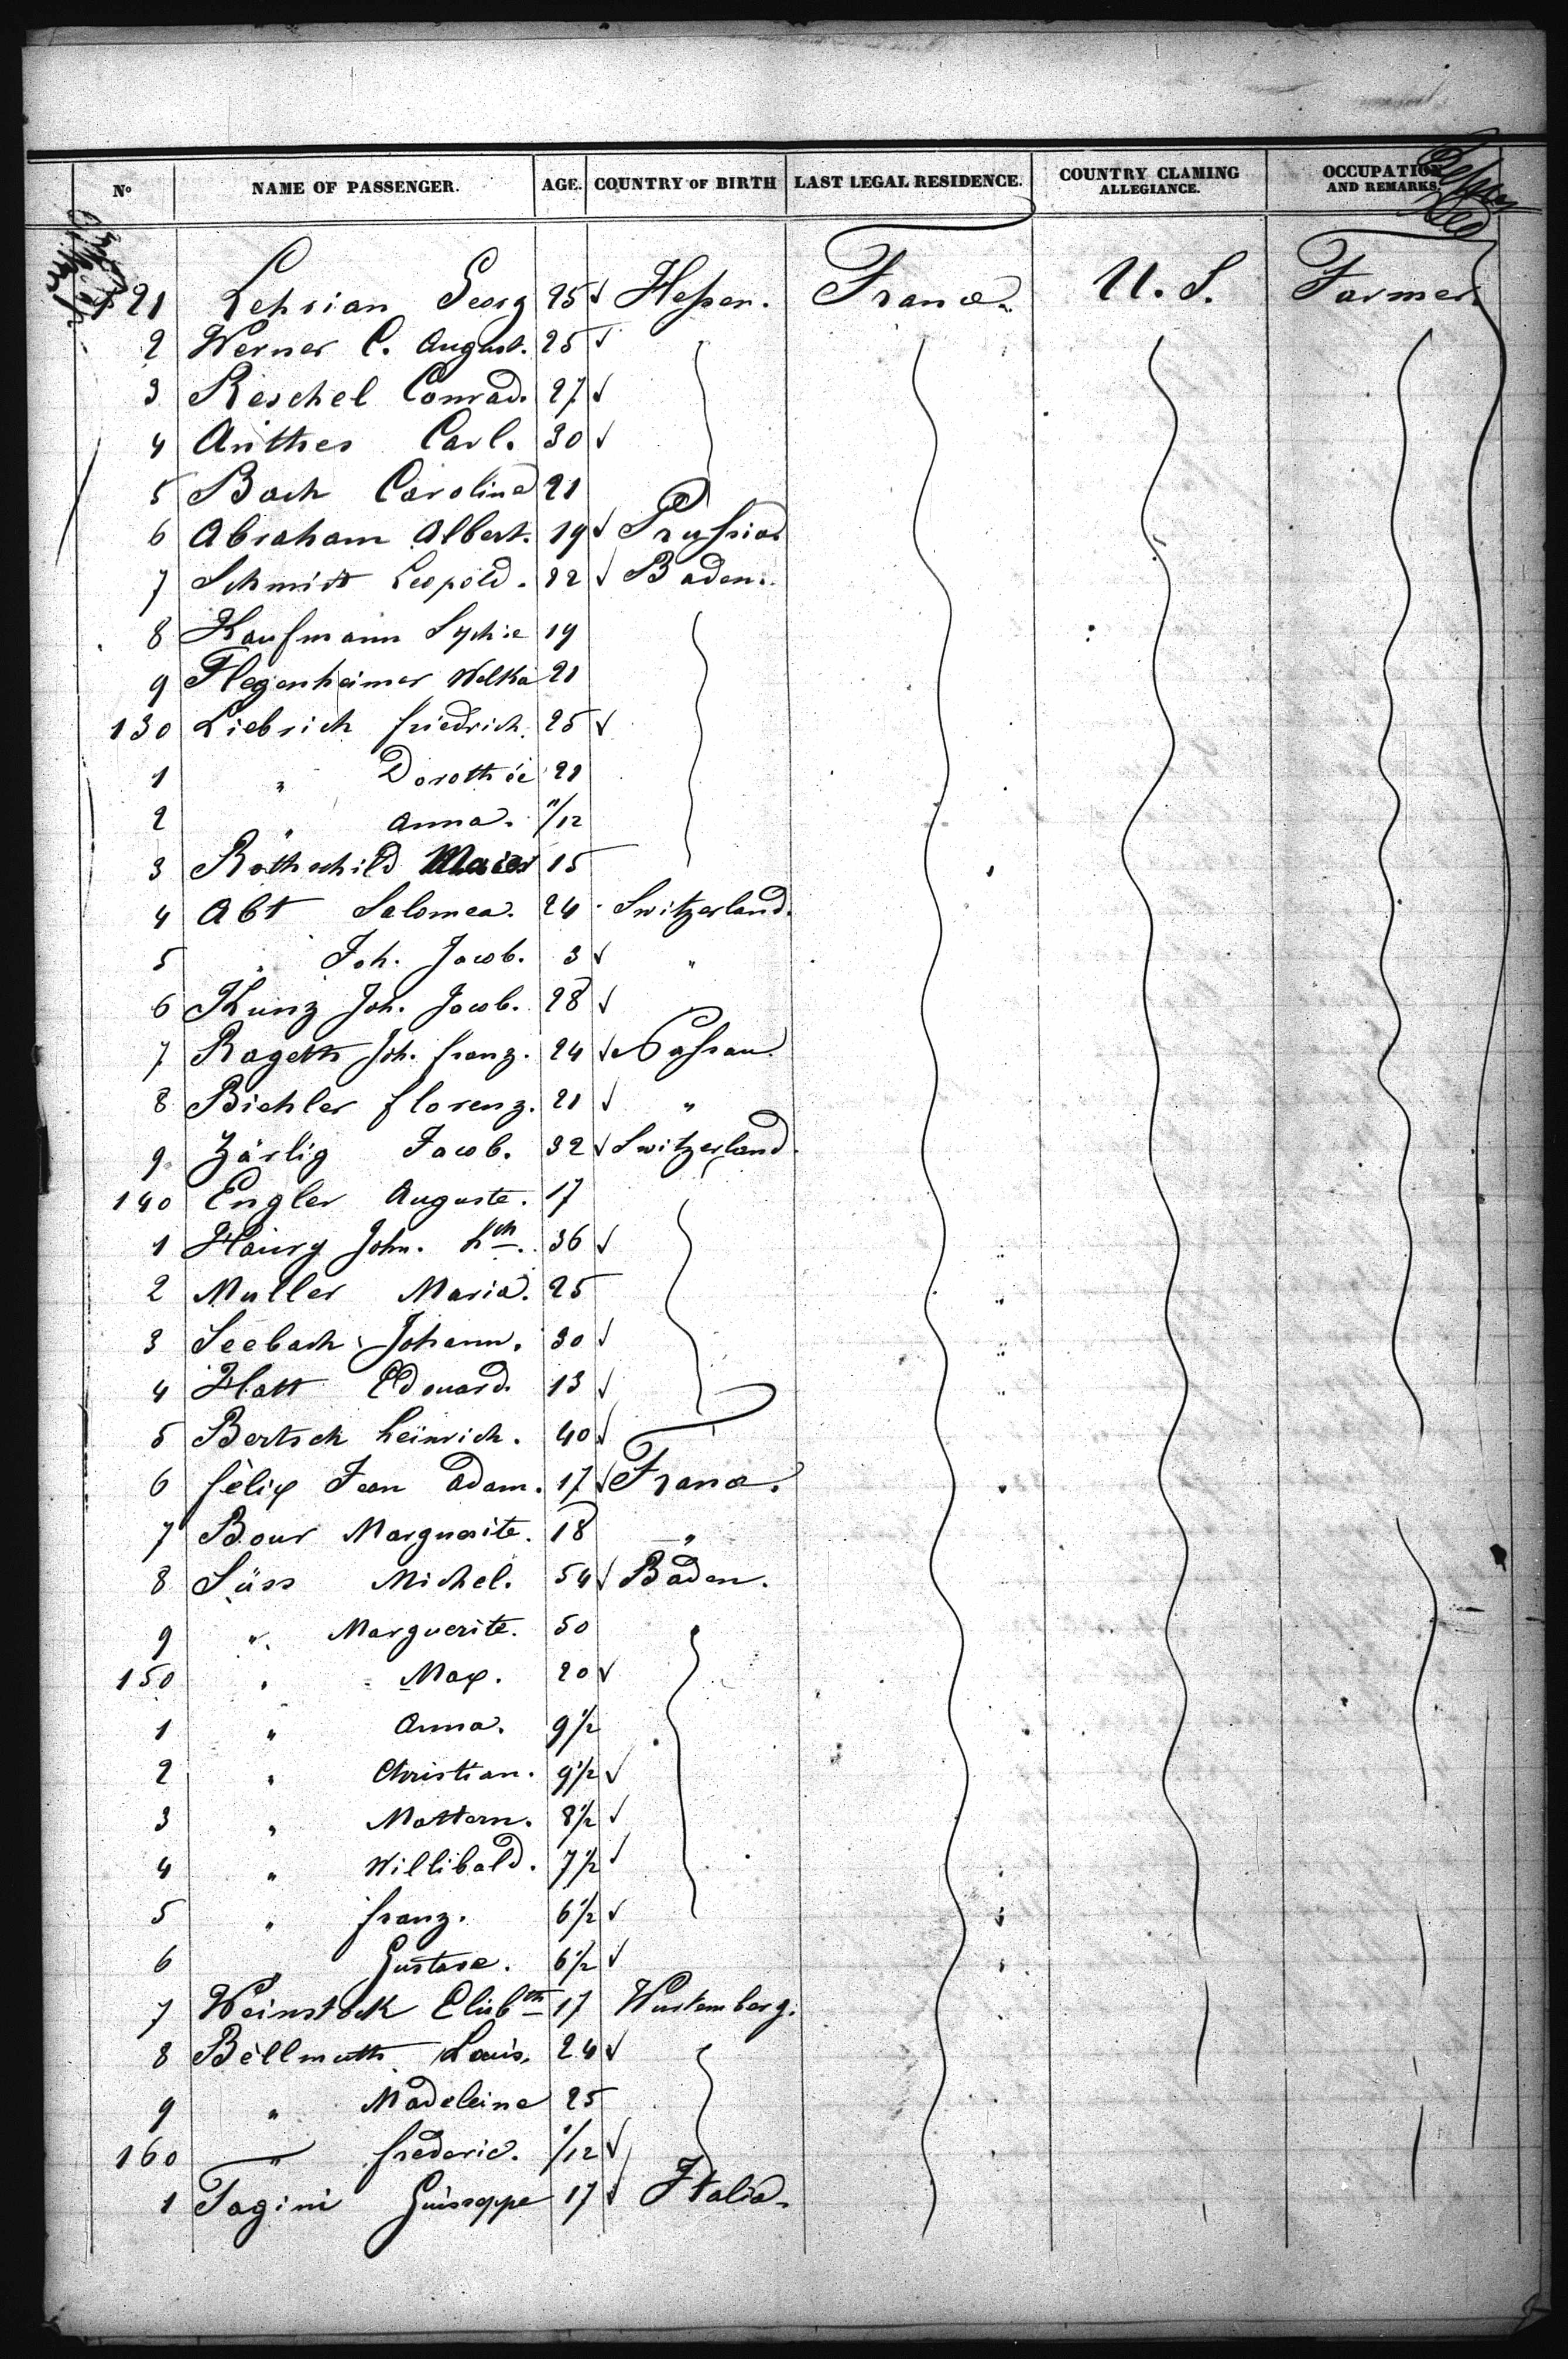 Nº NAME OF PASSENGER. AGE. COUNTRY OF BIRTH LAST LEGAL RESIDENCE. COUNTRY CLAMING ALLEGIANCE. OCCUPATION AND REMARKS.
121 Lehrian Georg 25 √ Hessen. France. U. S. Farmer.
2 Werner C. August. 25 √
3 Reschel Conrad. 27 √
4 Anthes Carl. 30 √
5 Bach Carolina 21
6 Abraham Albert. 19 √ Prussia
7 Schmidt Leopold. 22 √ Baden.
8 Kaufmann Sophie 19
9 Flegenheimer 21
130 Liebrich friedrich. 25 √
1 " Dorothée 21
2 " Anna. 11/12
3 Rothschild Maier 15
4 Abt Salomea. 24 Switzerland.
5 " Joh. Jacob. 3 √ "
6 Kunz Joh. Jacob. 28 √
7 Rageth Joh. franz. 24 √ Nassau.
8 Biehler florenz. 21 √ "
9 Zärlig Jacob. 32 √ Switzerland.
140 Engler Auguste. 17
1 Haury John. hch. 36 √
2 Muller Maria. 25
3 Seebach Johann. 30 √
4 Hatt Edouard. 13 √
5 Bertsch heinrich. 40 √
6 félix Jean Adam. 17 √ France.
7 Bour Marguerite. 18 "
8 Süss Michel. 54 √ Baden.
9 " Marguerite. 50
150 " Max. 20 √
1 " Anna. 9 1/2
2 " Christian. 9 1/2 √
3 " Mattern. 8 1/2 √
4 " Willibald. 7 1/2 √
5 " franz. 6 1/2 √
6 Gustave. 6 1/2 √
7 Weinstock Elisbth 17 Wurtemberg.
8 Bellmuth Louis. 24 √
9 " Madeleine 25
160 " frederic. 1/12 √
1 Tagini Guiseppe 17 √ Italia.